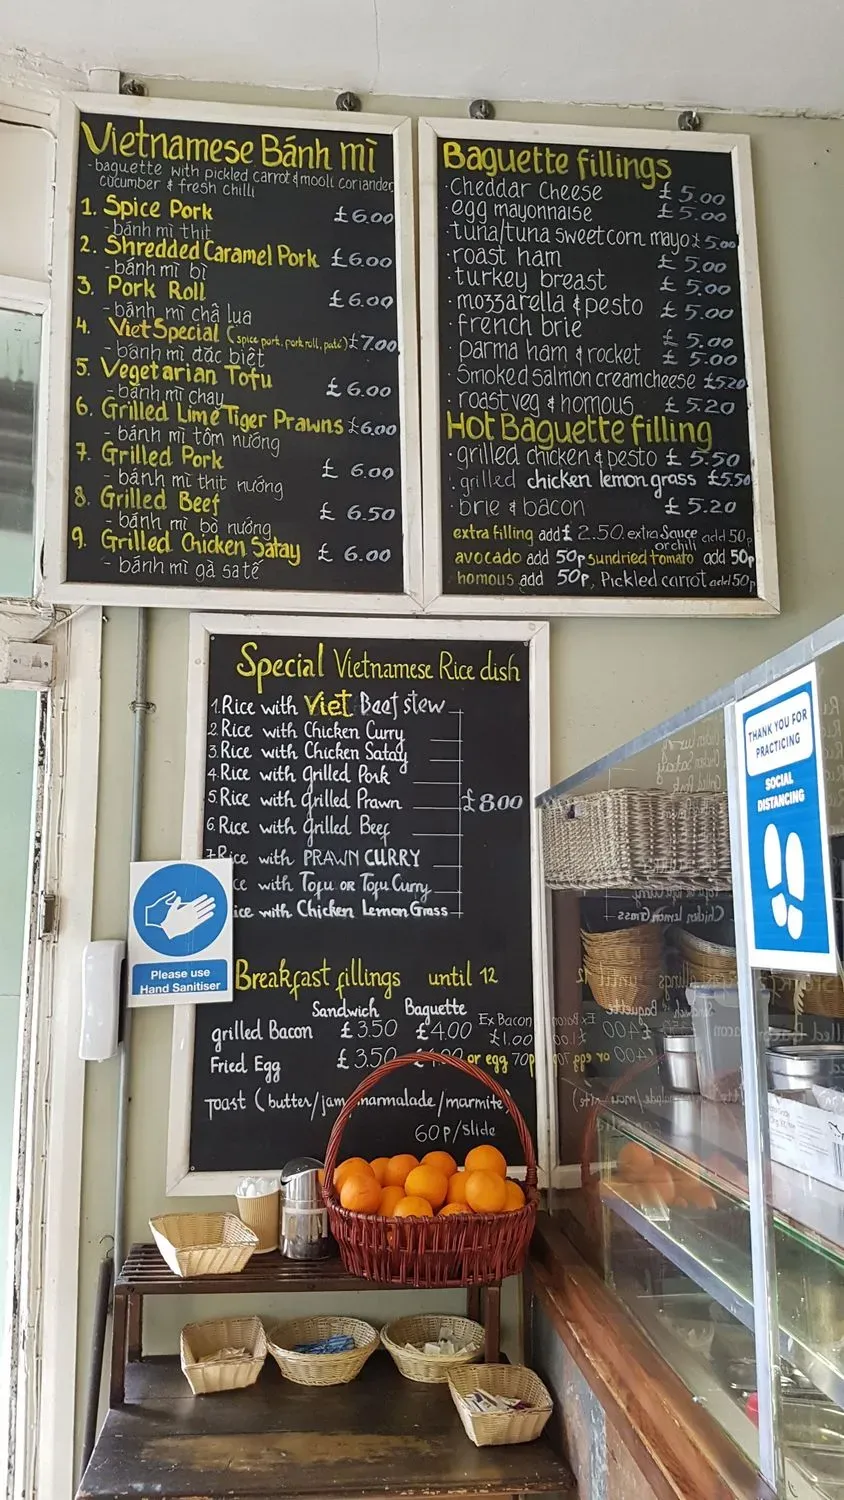 Vietnamese Bánh mì
- baguette with pickled carrot & mooli coriander
cucumber & fresh chilli
1. Spice Pork £6.00
- bánh mì thịt
2. Shredded Caramel Pork £6.00
- bánh mì bì
3. Pork Roll £6.00
- bánh mì chả lụa
4. Viet Special (spice pork, pork roll, paté) £7.00
- bánh mì đặc biệt
5. Vegetarian Tofu £6.00
- bánh mì chay
6. Grilled Lime Tiger Prawns £6.00
- bánh mì tôm nướng
7. Grilled Pork £6.00
- bánh mì thịt nướng
8. Grilled Beef £6.50
- bánh mì bò nướng
9. Grilled Chicken Satay £6.00
- bánh mì gà saté
Baguette fillings
· cheddar cheese £5.00
· egg mayonnaise £5.00
· tuna/tuna sweetcorn mayo £5.00
· roast ham £5.00
· turkey breast £5.00
· mozzarella & pesto £5.00
· french brie £5.00
· parma ham & rocket £5.00
· Smoked salmon creamcheese £5.20
· roast veg & homous £5.20
Hot Baguette filling
· grilled chicken & pesto £5.50
· grilled chicken lemon grass £5.50
· brie & bacon £5.20
extra filling add £2.50. extra Sauce or chili add 50p
avocado add 50p sundried tomato add 50p
homous add 50p, Pickled carrot add 50p
Special Vietnamese Rice dish
1. Rice with Viet Beef stew
2. Rice with Chicken Curry
3. Rice with Chicken Satay
4. Rice with grilled Pork
5. Rice with grilled Prawn £8.00
6. Rice with grilled Beef
7. Rice with PRAWN CURRY
ce with Tofu or Tofu Curry
ice with Chicken Lemon Grass
Breakfast fillings until 12
Sandwich Baguette
grilled Bacon £3.50 £4.00 Ex Bacon £1.00
Fried Egg £3.50 or egg 70p
Toast (butter/jam/marmalade/marmite)
60p/slide
Please use
Hand Sanitiser
THANK YOU FOR
PRACTICING
SOCIAL
DISTANCING